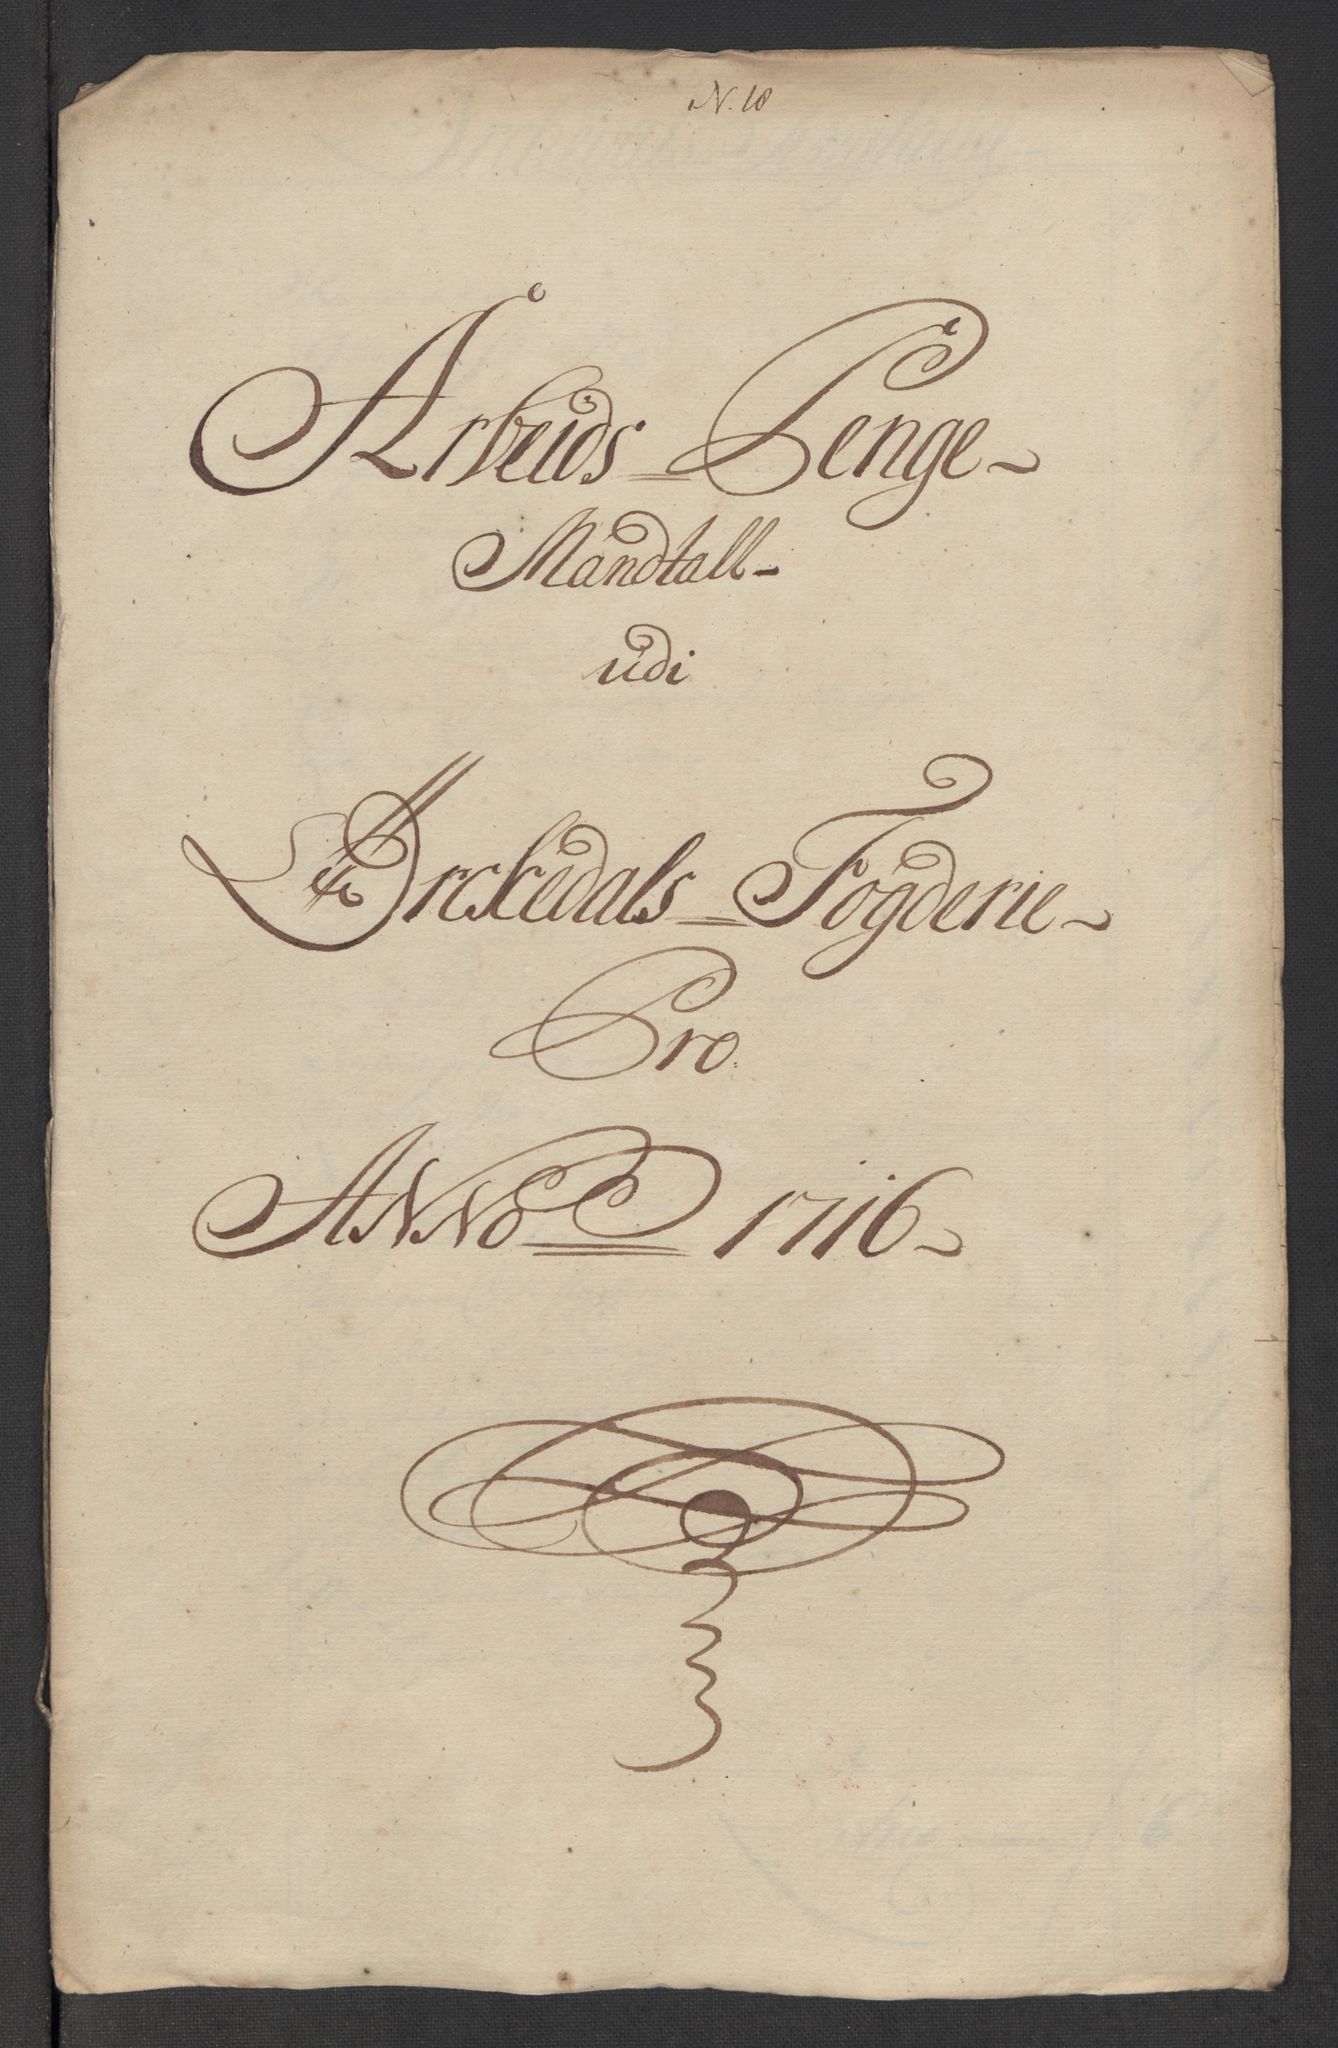 N. 18
Arbeids Penge-
Mandtall-
udi
Orckedals Fogderie-
Pro.
ANNO 1716-